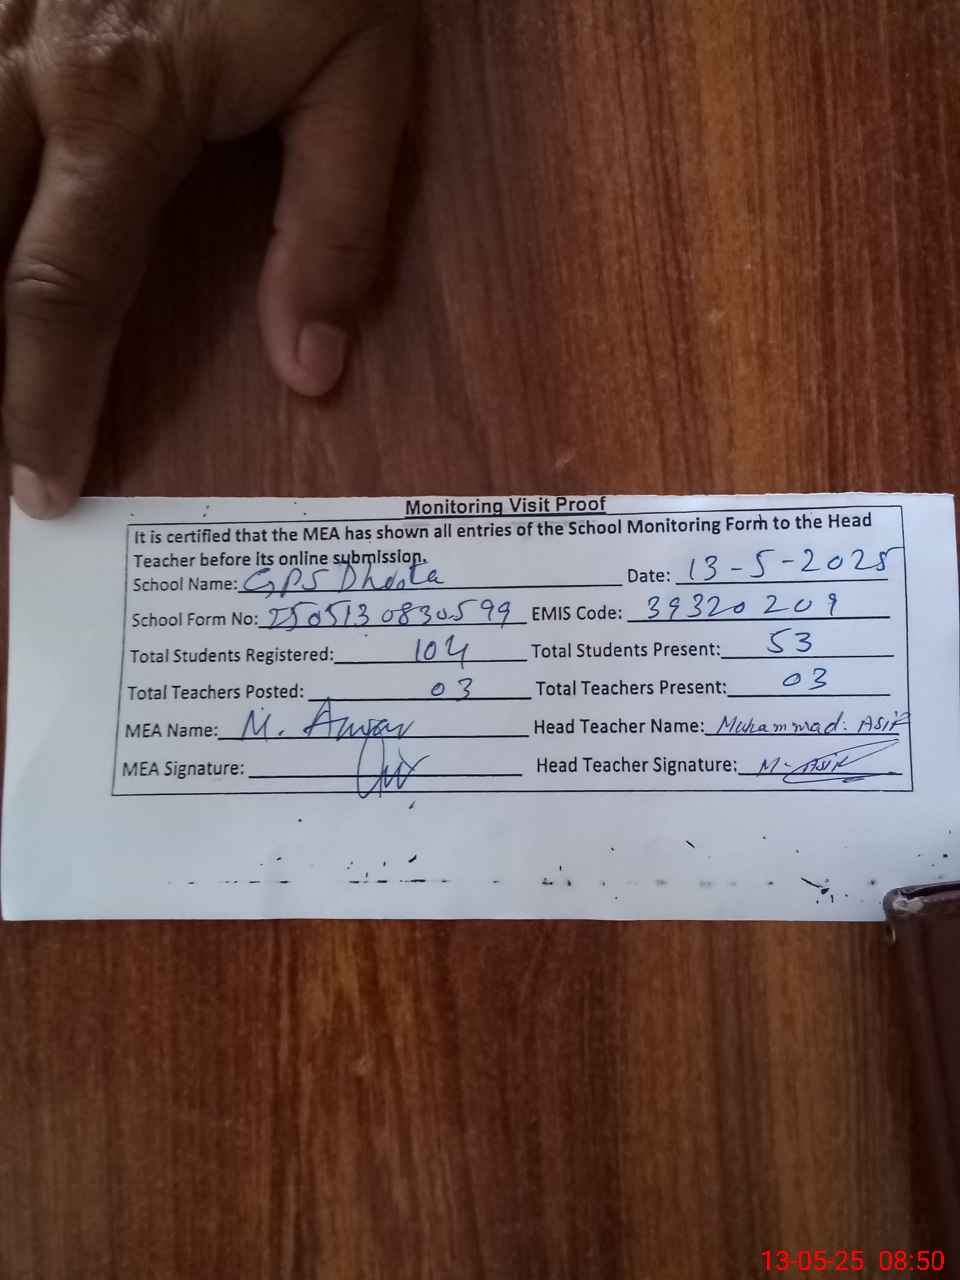 Monitoring Visit Proof
It is certified that the MEA has shown all entries of the School Monitoring Form to the Head
Teacher before its online submission.
School Name: GPS Date: 13-5-2025
School Form No: 2505130830599 EMIS Code: 39320209
Total Students Registered: 104 Total Students Present: 53
Total Teachers Posted: 03 Total Teachers Present: 03
MEA Name: M. Head Teacher Name: Muhammad. ASIF
MEA Signature: Head Teacher Signature: M. Asif
13-05-25 08:50